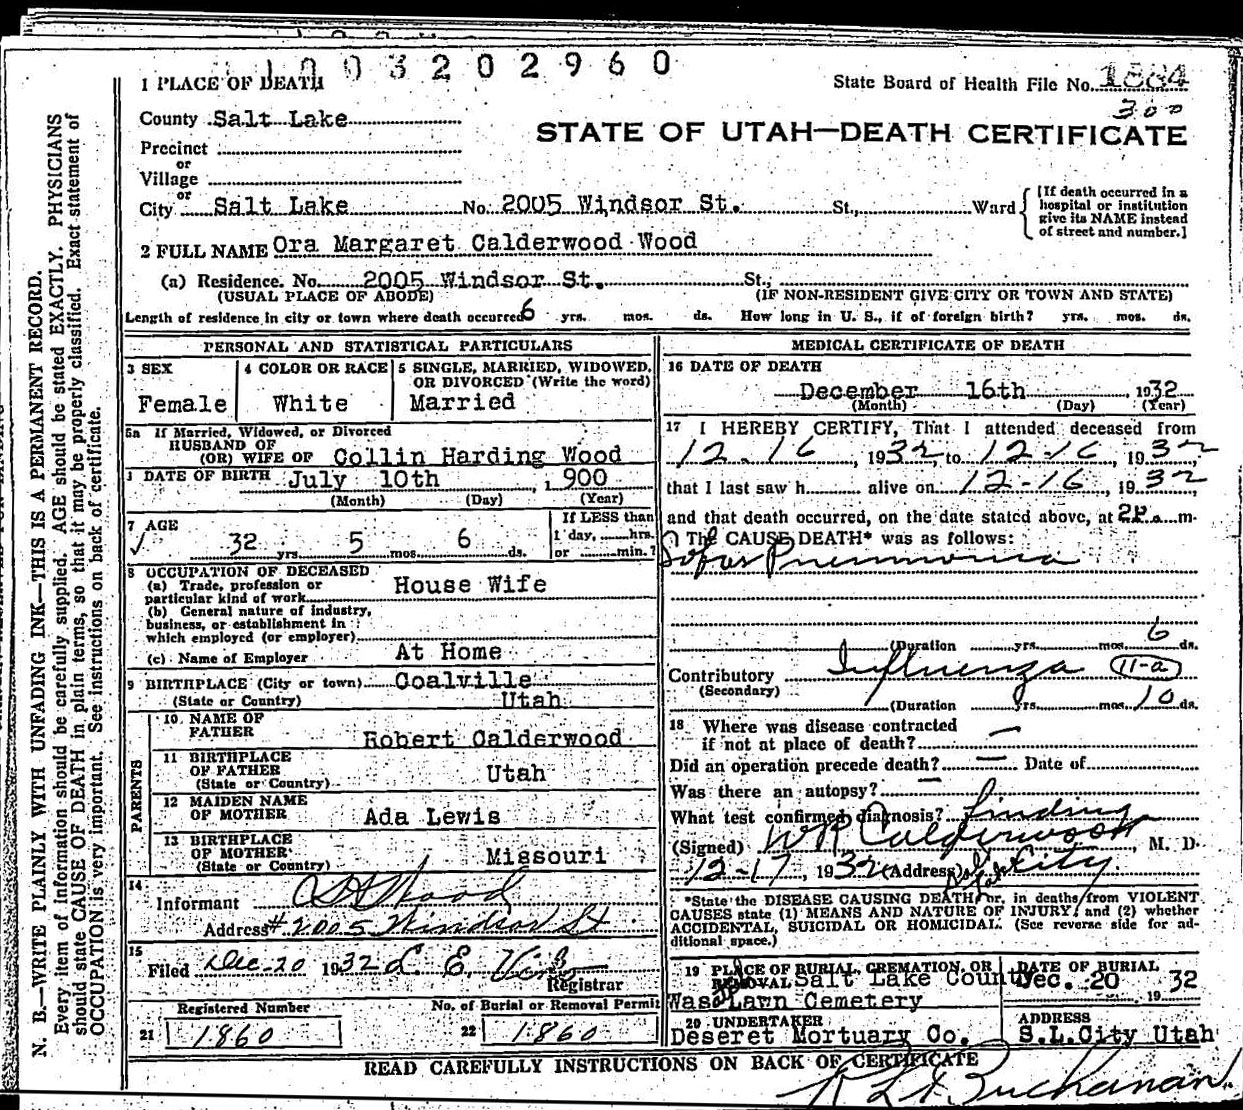 1003202960
1 PLACE OF DEATH
State Board of Health File No. 1884
300
County Salt Lake
STATE OF UTAH—DEATH CERTIFICATE
Precinct
or
Village
or
City Salt Lake No. 2005 Windsor St. St., Ward
[If death occurred in a
hospital or institution
give its NAME instead
of street and number.]
2 FULL NAME Ora Margaret Calderwood Wood
(a) Residence. No. 2005 Windsor St. St.,
(USUAL PLACE OF ABODE) (IF NON-RESIDENT GIVE CITY OR TOWN AND STATE)
Length of residence in city or town where death occurred 6 yrs. mos. ds. How long in U. S., if of foreign birth? yrs. mos. ds.
N. B.—WRITE PLAINLY WITH UNFADING INK—THIS IS A PERMANENT RECORD.
Every item of information should be carefully supplied. AGE should be stated EXACTLY. PHYSICIANS
should state CAUSE OF DEATH in plain terms, so that it may be properly classified. Exact statement of
OCCUPATION is very important. See instructions on back of certificate.
PERSONAL AND STATISTICAL PARTICULARS
3 SEX
Female
4 COLOR OR RACE
White
5 SINGLE, MARRIED, WIDOWED,
OR DIVORCED (Write the word)
Married
5a If Married, Widowed, or Divorced
HUSBAND OF
(OR) WIFE OF Collin Harding Wood
DATE OF BIRTH July 10th , 1 900
(Month) (Day) (Year)
7 AGE
32 yrs. 5 mos. 6 ds.
If LESS than
1 day, hrs.
or min.?
8 OCCUPATION OF DECEASED
(a) Trade, profession or
particular kind of work House Wife
(b) General nature of industry,
business, or establishment in
which employed (or employer)
(c) Name of Employer At Home
9 BIRTHPLACE (City or town) Coalville
(State or Country) Utah
PARENTS
10 NAME OF
FATHER Robert Calderwood
11 BIRTHPLACE
OF FATHER
(State or Country) Utah
12 MAIDEN NAME
OF MOTHER Ada Lewis
13 BIRTHPLACE
OF MOTHER
(State or Country) Missouri
14
Informant Wood
Address #2005 Windsor St
15
Filed Dec. 20 1932 L. E.
Registrar
Registered Number
21 1860
No. of Burial or Removal Permit
22 1860
MEDICAL CERTIFICATE OF DEATH
16 DATE OF DEATH
December 16th , 1932
(Month) (Day) (Year)
17 I HEREBY CERTIFY, That I attended deceased from
12-16 , 1932, to 12-16 , 1932,
that I last saw h alive on 12-16 , 1932,
and that death occurred, on the date stated above, at m.
The CAUSE DEATH* was as follows:
Pneumonia
(Duration yrs. mos. 6 ds.
Contributory Influenza 11-a
(Secondary)
(Duration yrs. mos. 10 ds.
18 Where was disease contracted
if not at place of death? —
Did an operation precede death? — Date of
Was there an autopsy? —
What test confirmed diagnosis? Finding
(Signed) W R Calderwood , M. D.
12-17 , 1932 (Address) City
*State the DISEASE CAUSING DEATH, or, in deaths from VIOLENT
CAUSES state (1) MEANS AND NATURE OF INJURY; and (2) whether
ACCIDENTAL, SUICIDAL OR HOMICIDAL. (See reverse side for ad-
ditional space.)
19 PLACE OF BURIAL, CREMATION, OR
REMOVAL Salt Lake County
Wasa Lawn Cemetery
DATE OF BURIAL
Dec. 20 , 19 32
20 UNDERTAKER
Deseret Mortuary Co.
ADDRESS
S.L.City Utah
READ CAREFULLY INSTRUCTIONS ON BACK OF CERTIFICATE
Buchanan